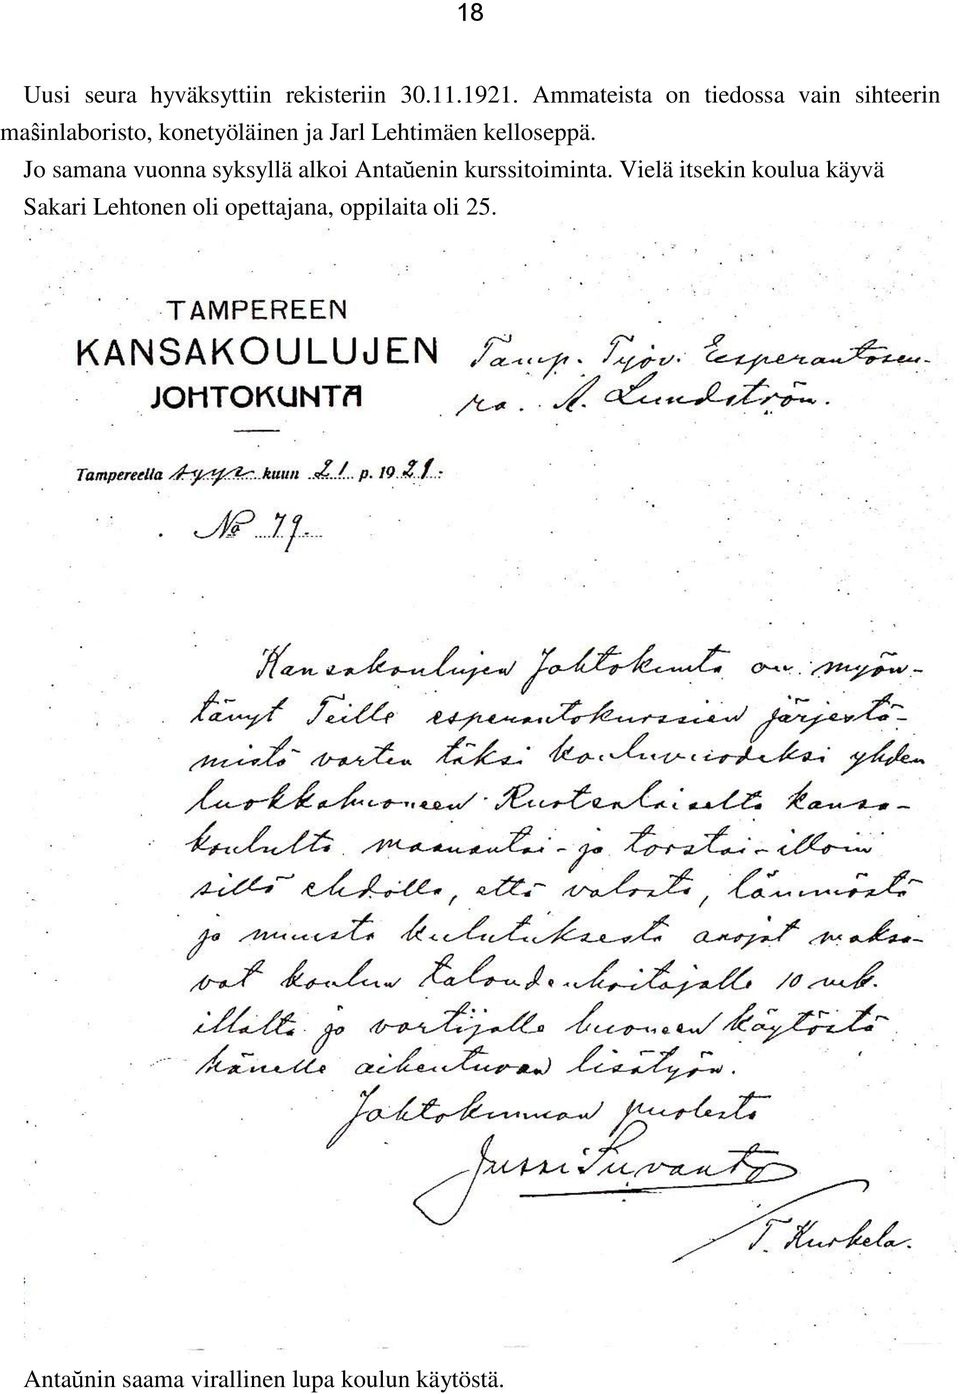 18
Uusi seura hyväksyttiin rekisteriin 30.11.1921. Ammateista on tiedossa vain sihteerin
maŝinlaboristo, konetyöläinen ja Jarl Lehtimäen kelloseppä.
Jo samana vuonna syksyllä alkoi Antaŭenin kurssitoiminta. Vielä itsekin koulua käyvä
Sakari Lehtonen oli opettajana, oppilaita oli 25.
TAMPEREEN
KANSAKOULUJEN
JOHTOKUNTA
Tamp. Työv. Esperantoseu-
ra. A. Lundström.
Tampereella syys kuun 21 p. 1921.
No 79.
Kansakoulujen Johtokunta on myön-
tänyt Teille esperantokurssien järjestä-
mistä varten täksi kouluvuodeksi yhden
luokkahuoneen Ruotsalaiselta kansa-
koululta maanantai- ja torstai-illoin
sillä ehdolla, että valosta, lämmöstä
ja muusta kulutuksesta anojat maksa-
vat koulun taloudenhoitajalle 10 mk.
illalta ja vartijalle huoneen käytöstä
hänelle aiheutuvan lisätyön.
Johtokunnan puolesta
Jussi Suvanto
T. Kurkela.
Antaŭnin saama virallinen lupa koulun käytöstä.